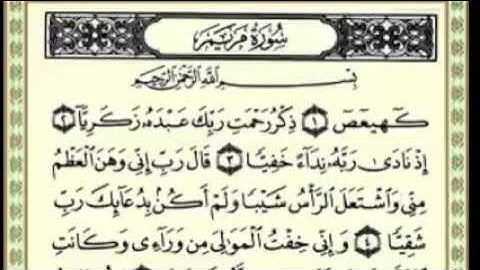 سُورَةُ مَرْيَمَ
بِسْمِ اللَّهِ الرَّحْمَٰنِ الرَّحِيمِ
كٓهيعٓصٓ ١ ذِكْرُ رَحْمَتِ رَبِّكَ عَبْدَهُۥ زَكَرِيَّآ ٢
إِذْ نَادَىٰ رَبَّهُۥ نِدَآءً خَفِيًّا ٣ قَالَ رَبِّ إِنِّي وَهَنَ الْعَظْمُ
مِنِّي وَاشْتَعَلَ الرَّأْسُ شَيْبًا وَلَمْ أَكُنۢ بِدُعَآئِكَ رَبِّ
شَقِيًّا ٤ وَإِنِّي خِفْتُ الْمَوَٰلِيَ مِن وَرَآءِى وَكَانَتِ